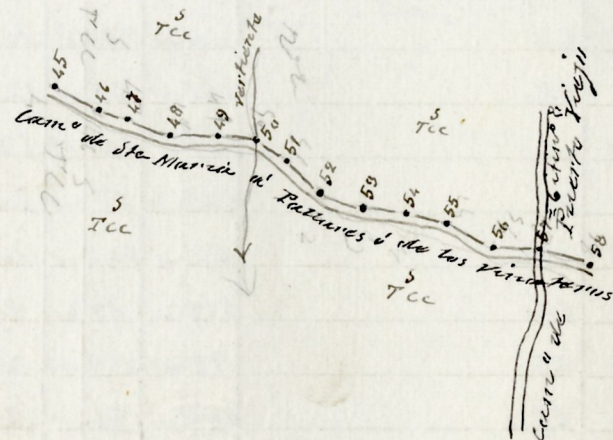 S
TCC
vertiente
45
46
47
48
49
50
51
52
53
54
55
56
57
58
S
TCC
S
TCC
S
TCC
Camº de Sta María á Pallares ó de los
Camº de Puerto Viejo